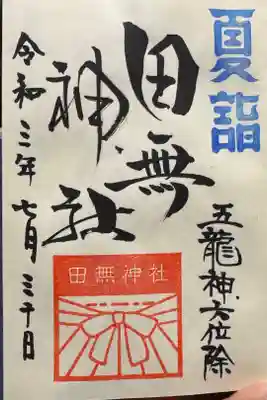 夏詣
五龍神方位除
田無
神社
令和三年七月三十日
田無神社